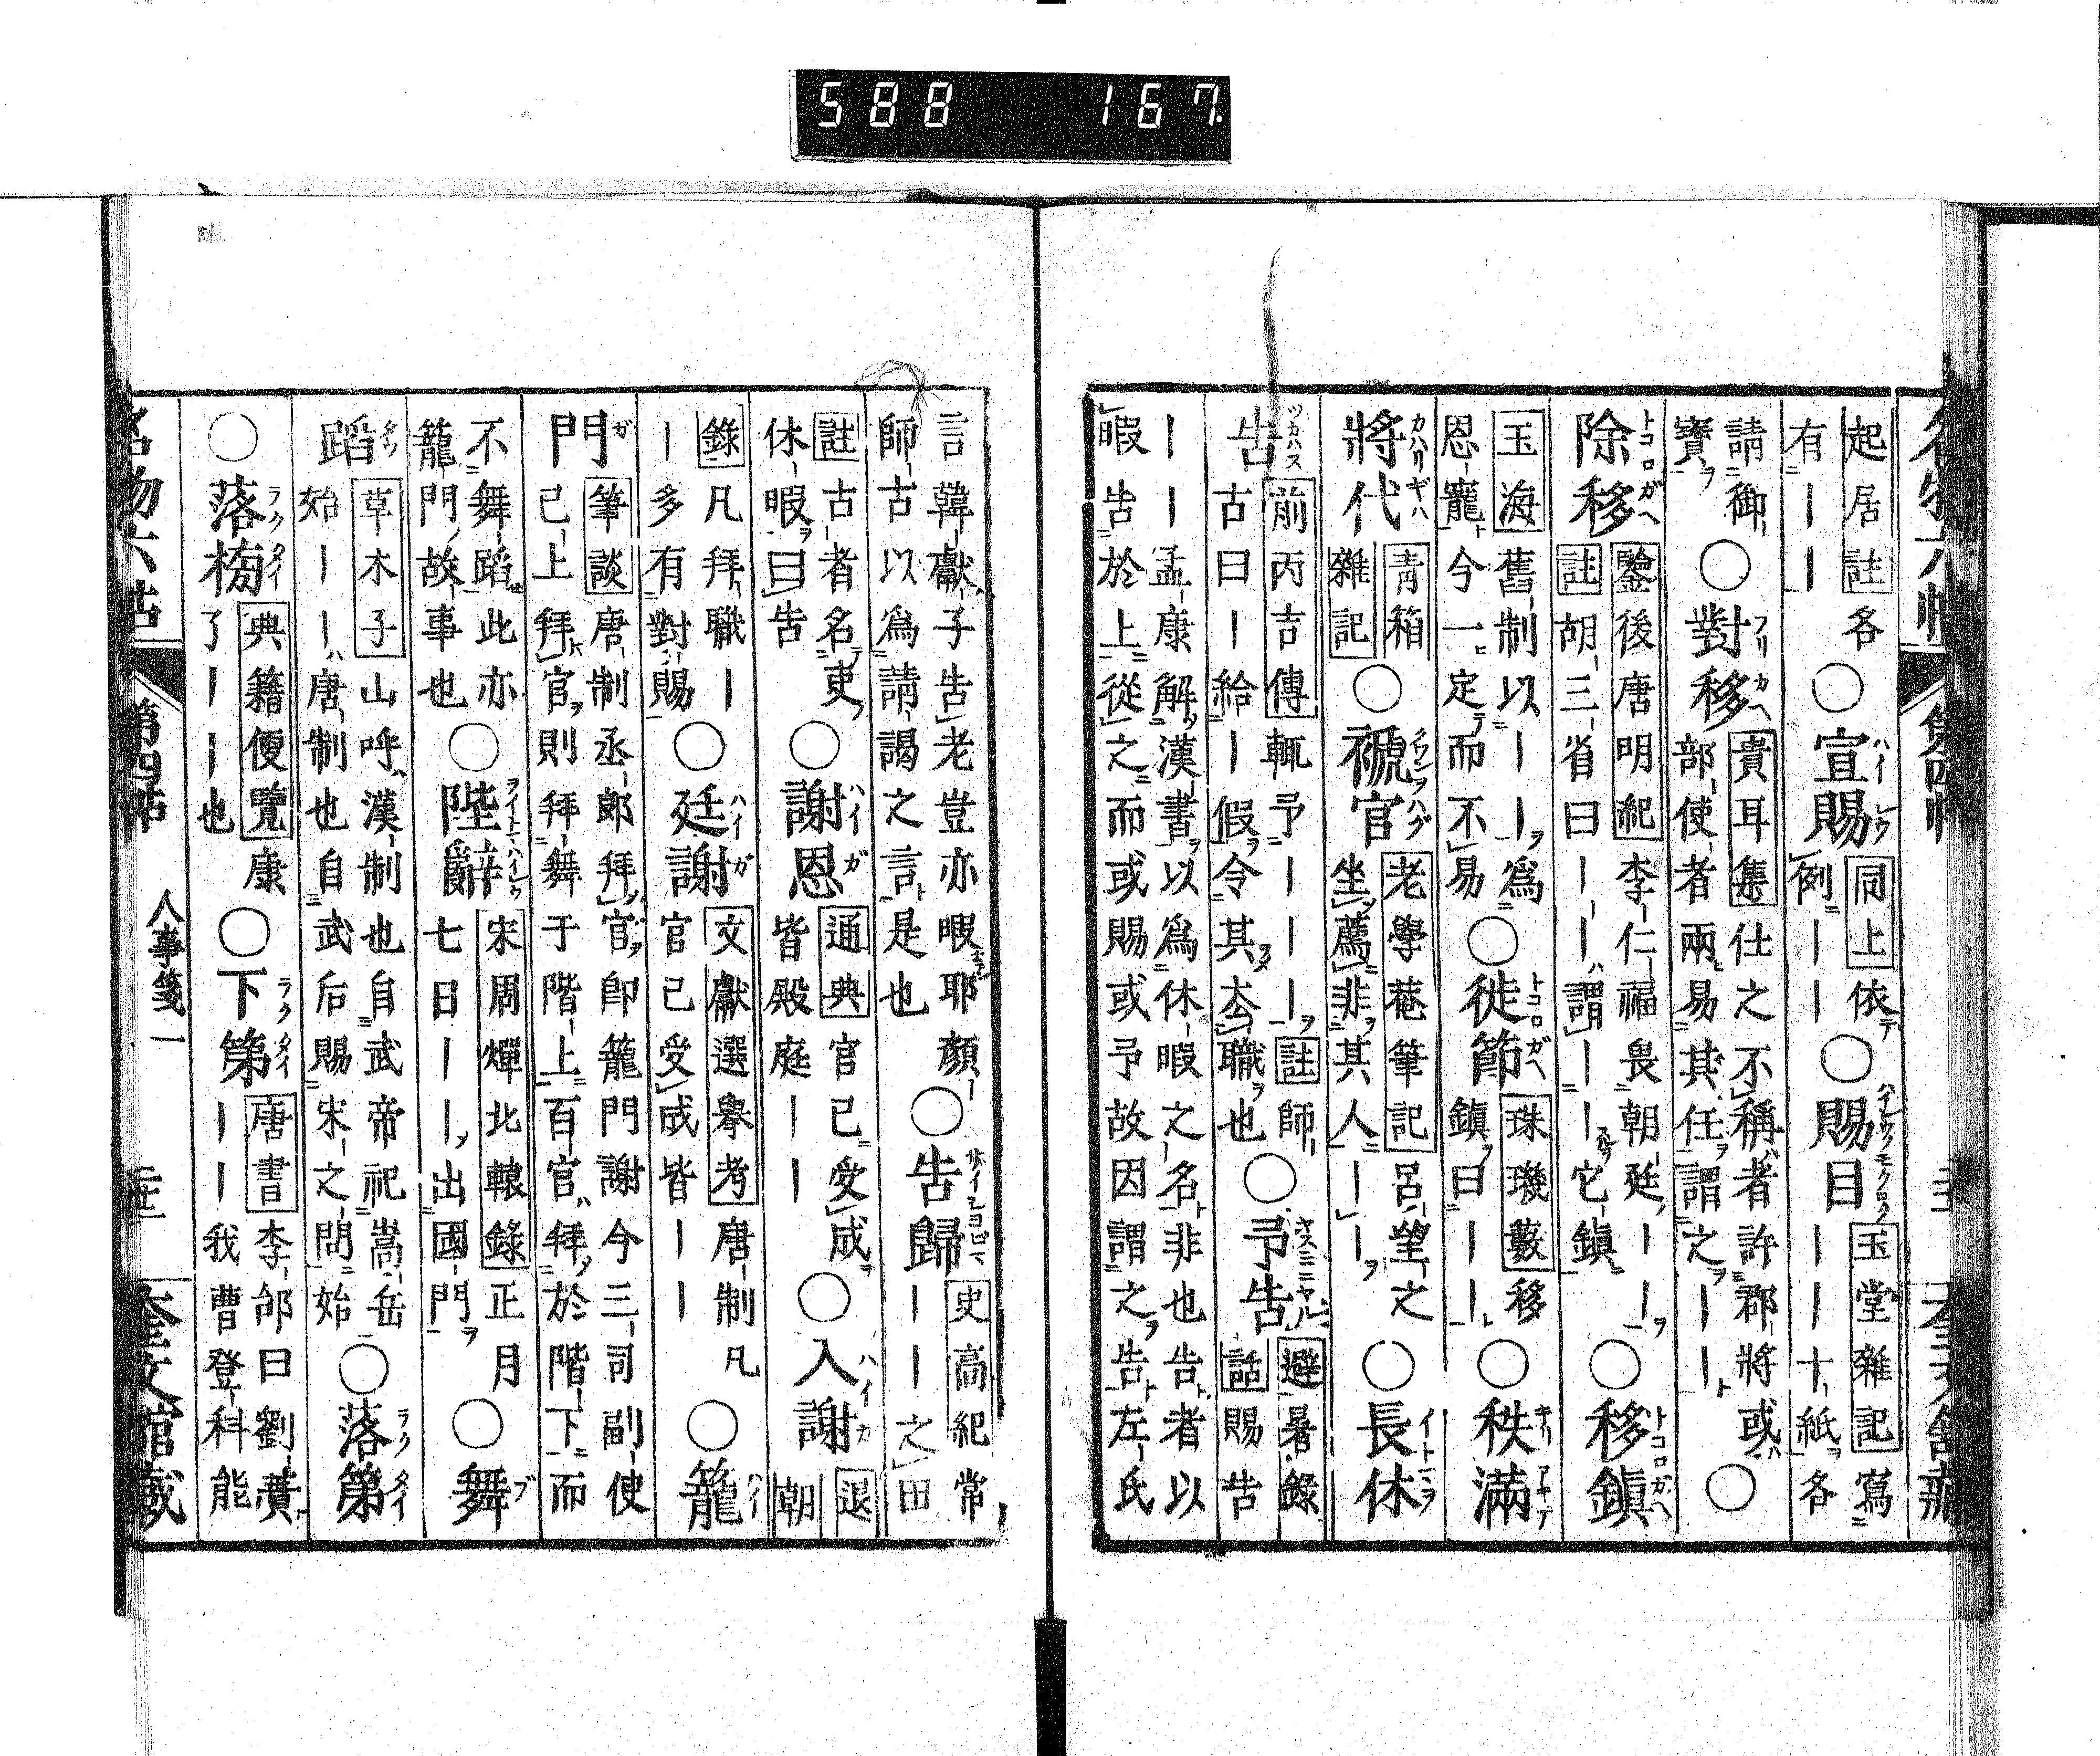 588 167.
起居註各
有｜｜○宣賜同上依例｜｜○賜目玉堂雜記寫｜｜十紙各
請御
寶○對移貴耳集仕之不稱者許郡將或部使者兩易其任謂之｜｜○
除移鑒後唐明紀李仁福畏朝廷｜｜註胡三省曰｜｜謂｜｜它鎮○移鎮
玉海舊制以｜｜爲
恩寵今一定而不易○徙節珠璣藪移鎮曰｜｜○秩滿
將代青箱雜記○褫官老學菴筆記呂望之坐薦非其人｜｜○長休
告前丙吉傳輒予｜｜｜註師古曰｜給｜假令其去職也○予告避暑錄話賜告
｜｜孟康解漢書以爲休暇之名非也告者以
暇告於上從之而或賜或予故因謂之告左氏
言韓獻子告老豈亦暇耶顏
師古以爲請謁之言是也○告歸史高紀常｜｜之田
註古者名吏
休暇曰告○謝恩通典官已受成皆殿庭｜｜○入謝退朝
錄凡拜職｜
｜多有對賜○廷謝文獻選擧考唐制凡官已受成皆｜｜○籠
門筆談唐制丞郎拜官即籠門謝今三司副使已上拜官則拜舞于階上百官拜於階下而
不舞蹈此亦
籠門故事也○陛辭宋周煇北轅錄正月七日｜｜出國門○舞
蹈草木子山呼漢制也自武帝祀嵩岳始｜｜唐制也自武后賜宋之問始○落第
○落梅典籍便覽康了｜｜也○下第唐書李郃曰劉蕡｜｜我曹登科能
名物六帖 第四帖 人事箋一 奎文館藏